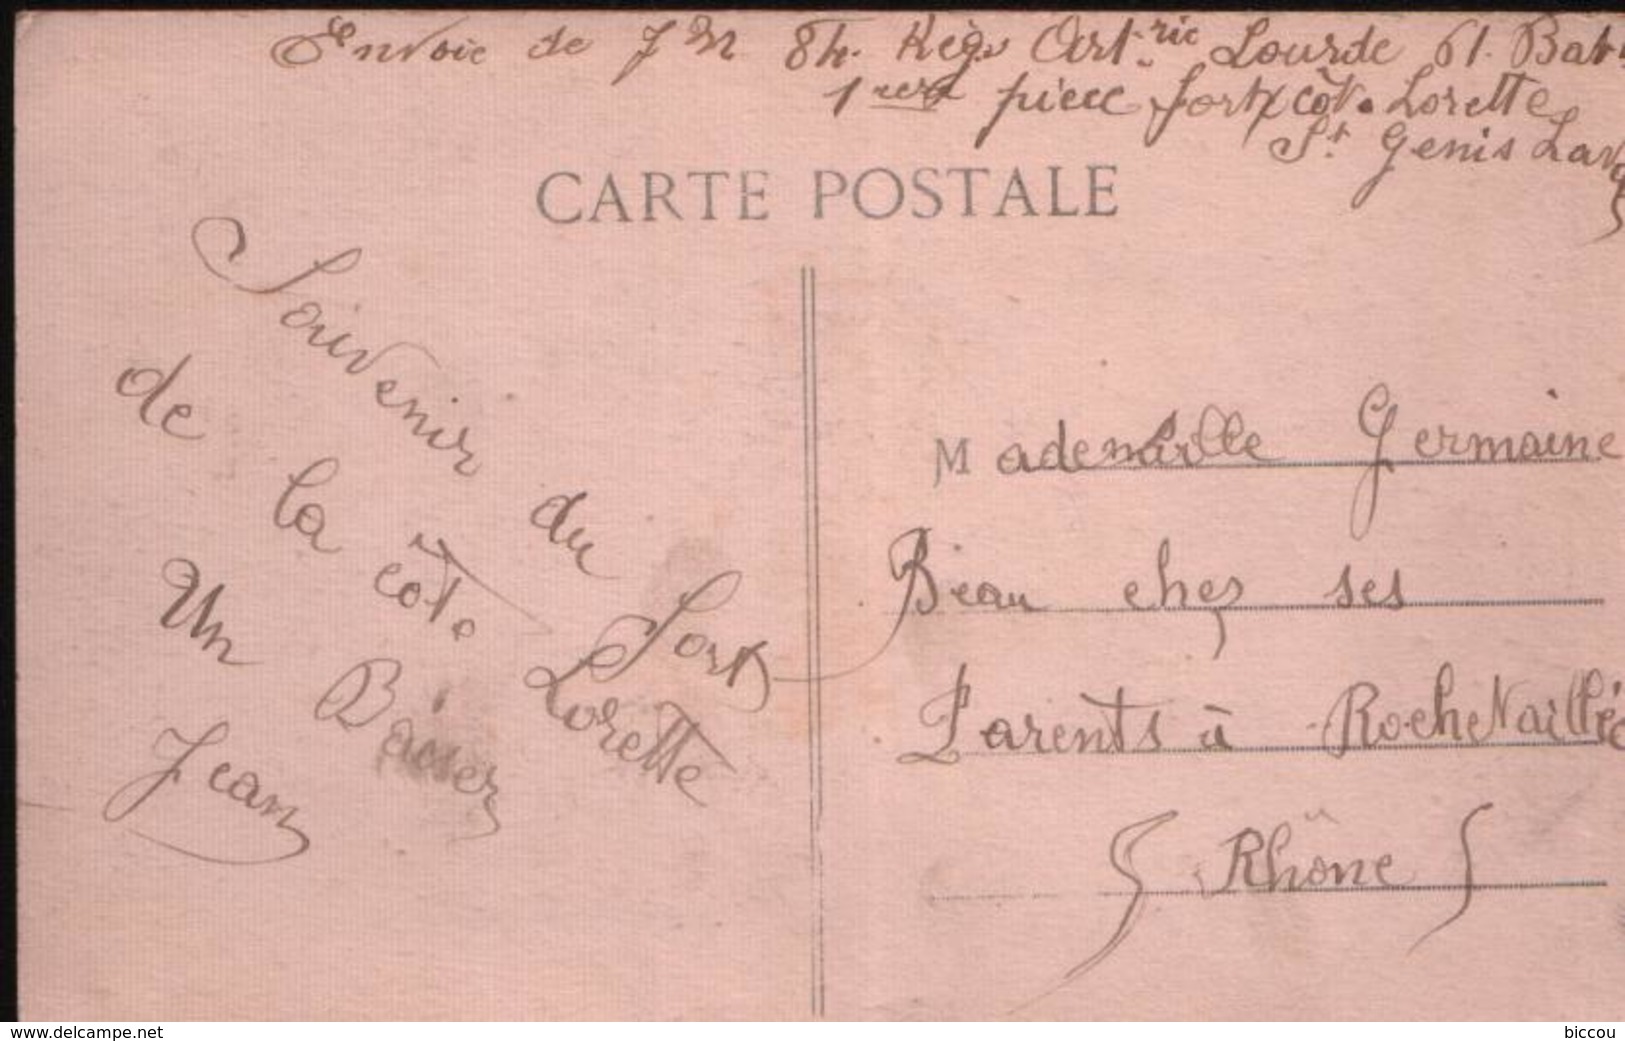 Envoie de J M 8h. Règ. Art.rie Lourde 61. Batr
1ere pièce fort côte Lorette
St. Genis Lav
CARTE POSTALE
Souvenir du Fort
de la côte Lorette
Un Baiser
Jean
Mademoiselle Germaine
Beau chez ses
Parents à Rochetaillée
Rhône
www.delcampe.net
biccou